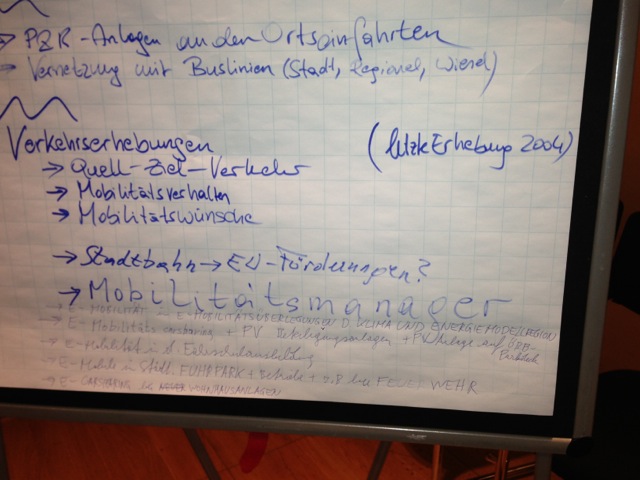 → P&R-Anlagen an den Ortseinfahrten
→ Vernetzung mit Buslinien (Stadt, Regional, Wiesel)
Verkehrserhebungen (letzte Erhebung 2004)
→ Quell-Ziel-Verkehr
→ Mobilitätsverhalten
→ Mobilitätswünsche
→ Stadtbahn → EU-Förderungen?
→ Mobilitätsmanager
→ E-MOBILITÄT in E-MOBILITÄTSÜBERLEGUNGEN D. KLIMA UND ENERGIEMODELLREGION
→ E-Mobilitäts carsharing + PV Beteiligungsanlagen + PV Anlage auf ÖBB
Parkdeck
→ E-Mobilität i. d. Fahrschulausbildung
→ E-Mobile im Städt. FUHRPARK + Betriebe + z.B. bei FEUERWEHR
→ E-CARSHARING bei NEUEN WOHNHAUSANLAGEN